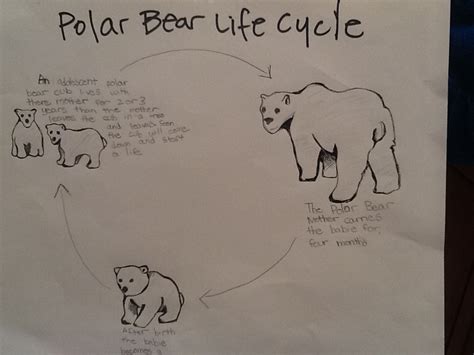 Polar Bear Life Cycle
An adolescent polar
bear cub lives with
there mother for 2 or 3
years than the mother
leaves the cub in a tree
and leaves soon
the cub will come
down and start
a life
The Polar Bear
Mother carries
the babie for
four months
After birth
the babie
becomes a